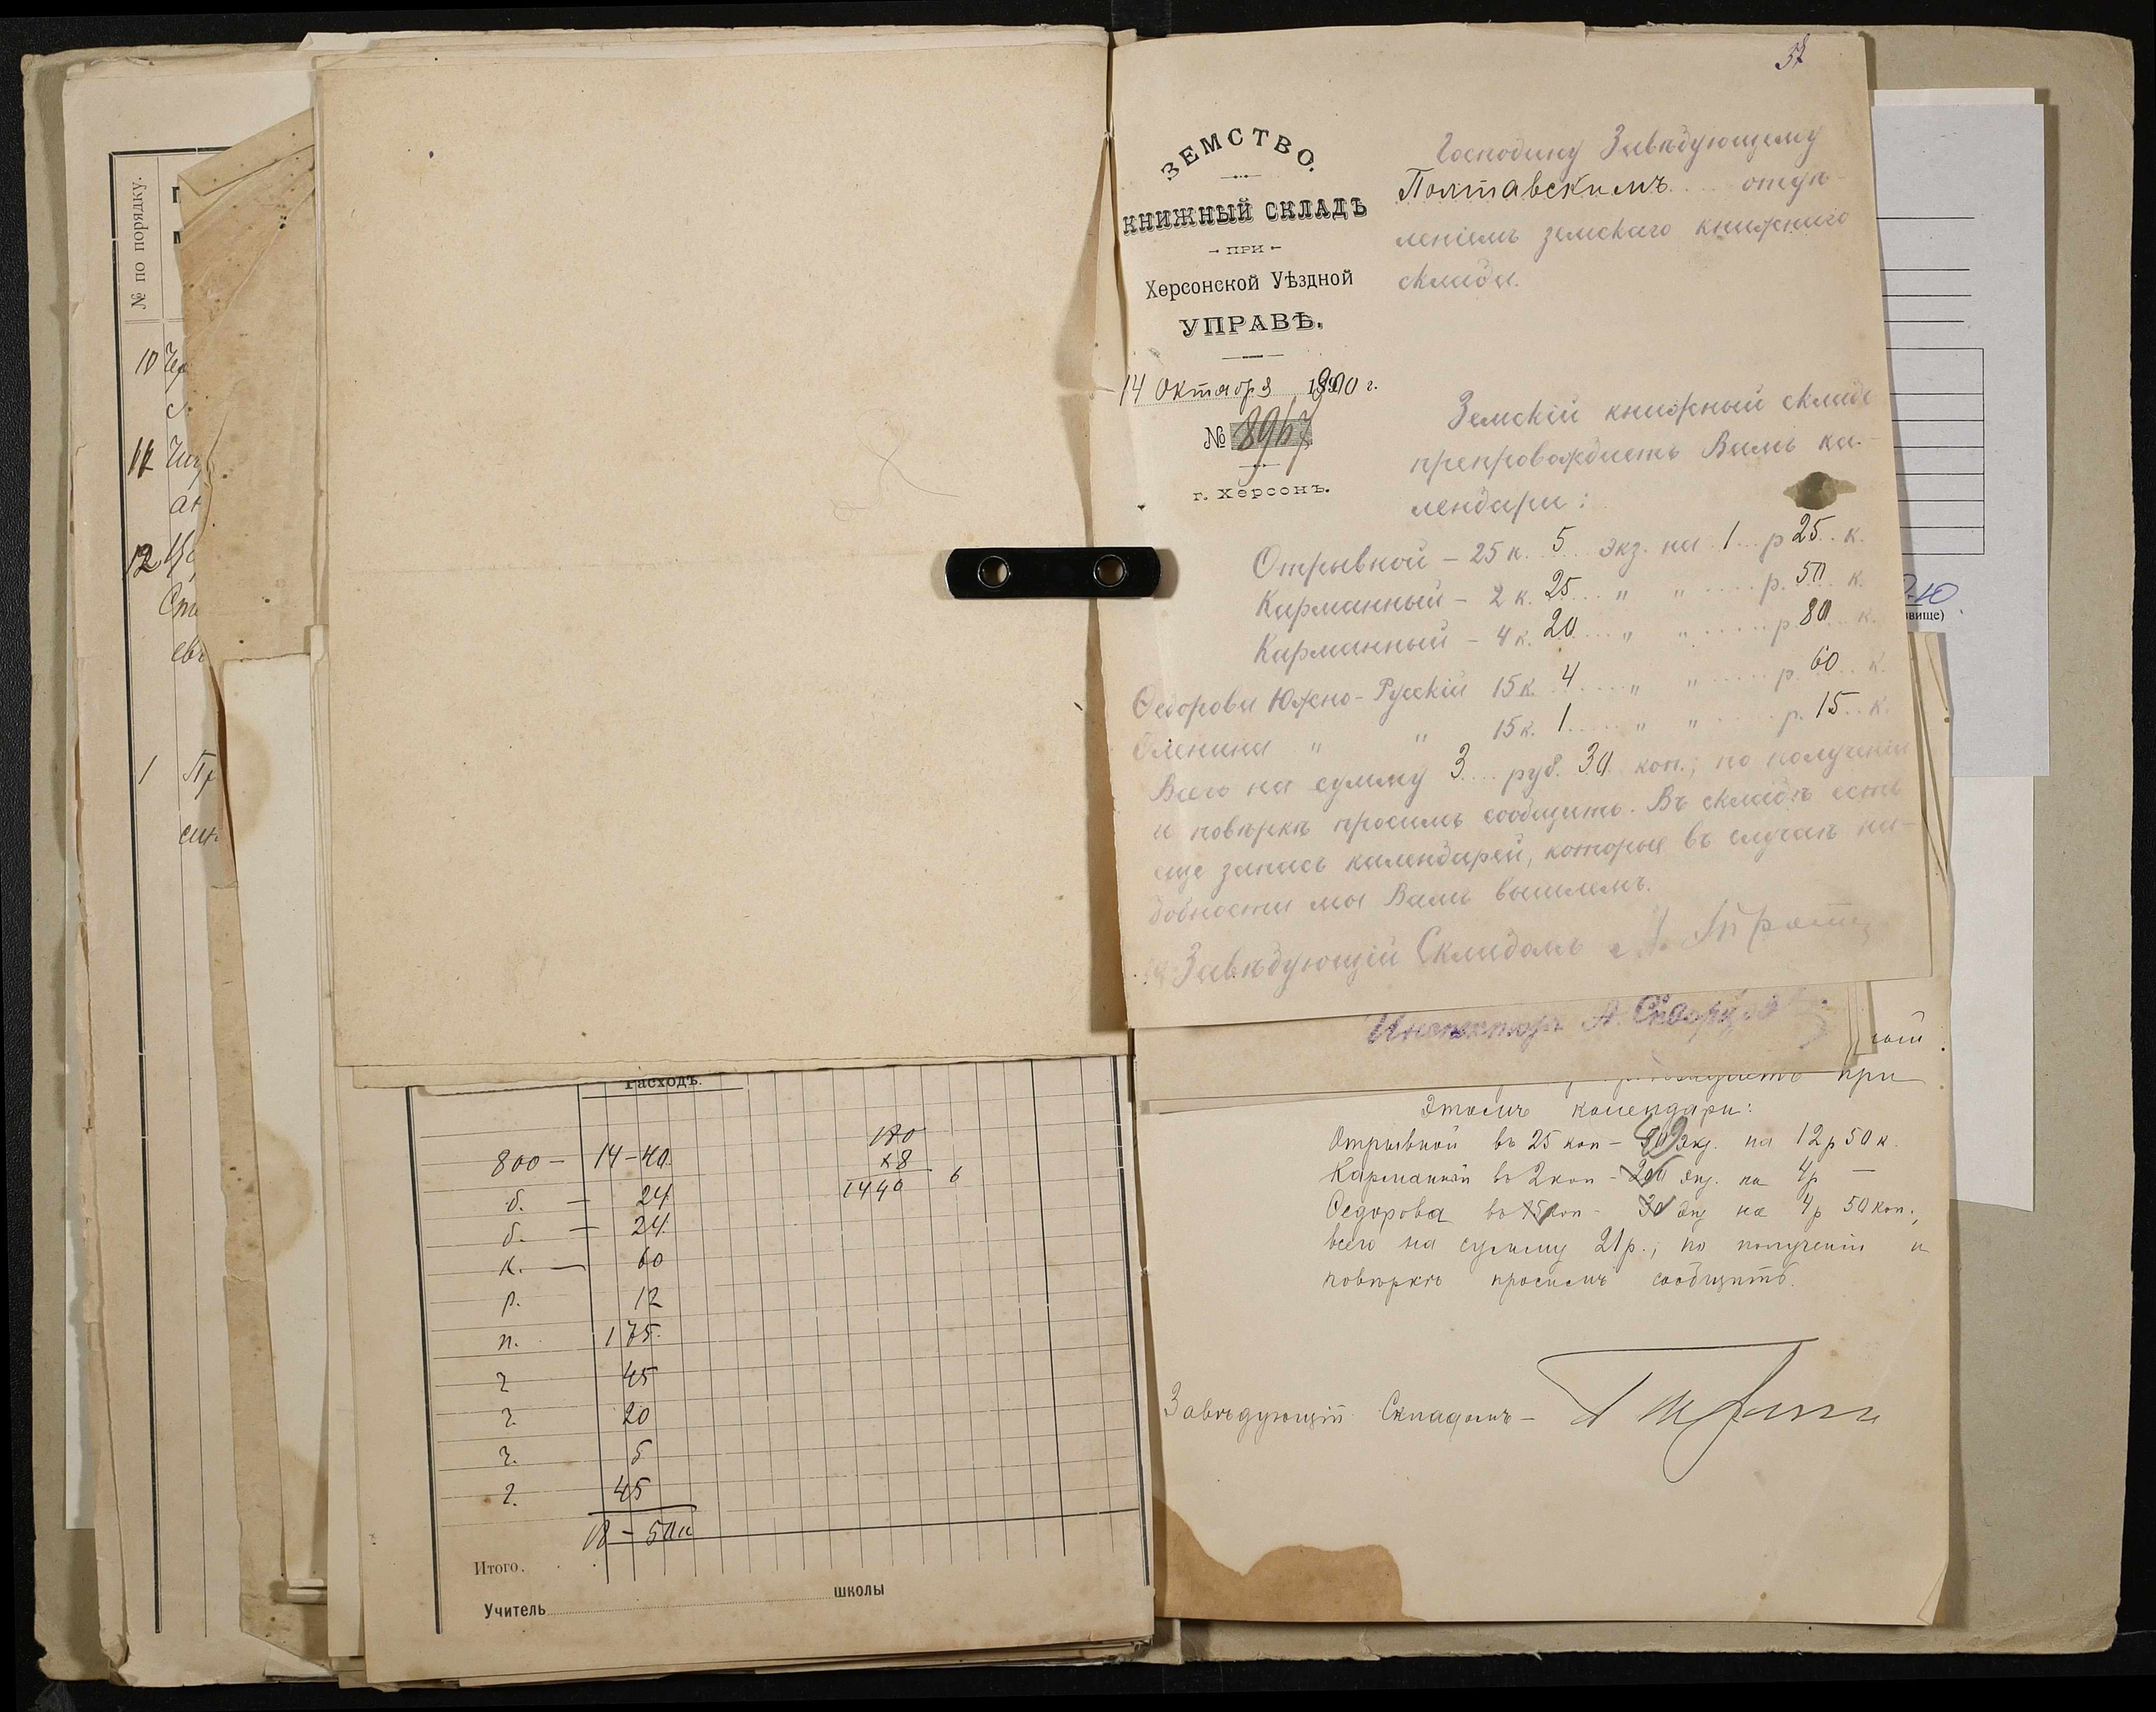 № по порядку.
10
11
12
1
Расходъ.
800 — 14-40
180
×8
1440 6
б. — 24
б. — 24
к. — 60
р. 12
п. 175
45
20
5
45
18 — 50 к
Итого.
Учитель школы
ЗЕМСТВО.
КНИЖНЫЙ СКЛАДЪ
ПРИ
Херсонской Уѣздной
УПРАВѢ.
14 Октября 1900 г.
№ 8967
г. Херсонъ.
Господину Завѣдующему
Полтавскимъ отдѣ-
леніемъ земскаго книжнаго
склада.
Земскій книжный складъ
препровождаетъ Вамъ ка-
лендари:
Отрывной – 25 к. 5 экз. на 1 р 25 к.
Карманный – 2 к. 25 " " р. 50 к.
Карманный – 4 к. 20 " " р 80 к.
Ѳедорова Южно-Русскій 15 к. 4 " " р. 60 к.
Оленина " " 15 к. 1 " " р. 15 к.
Всего на сумму 3 руб. 30 коп.; по полученіи
и повѣркѣ просимъ сообщить. Въ складѣ есть
еще запасъ календарей, которые въ случаѣ на-
добности мы Вамъ вышлемъ.
Завѣдующій Складомъ
Инспекторъ А.
при
этомъ календари:
Отрывной въ 25 коп – 50 экз. на 12 р 50 к.
Карманный въ 2 коп – 200 экз. на 4 р —
Ѳедорова въ 15 коп – 30 экз на 4 р 50 коп.,
всего на сумму 21 р.; по полученіи и
повѣркѣ просимъ сообщить.
Завѣдующій Складомъ –